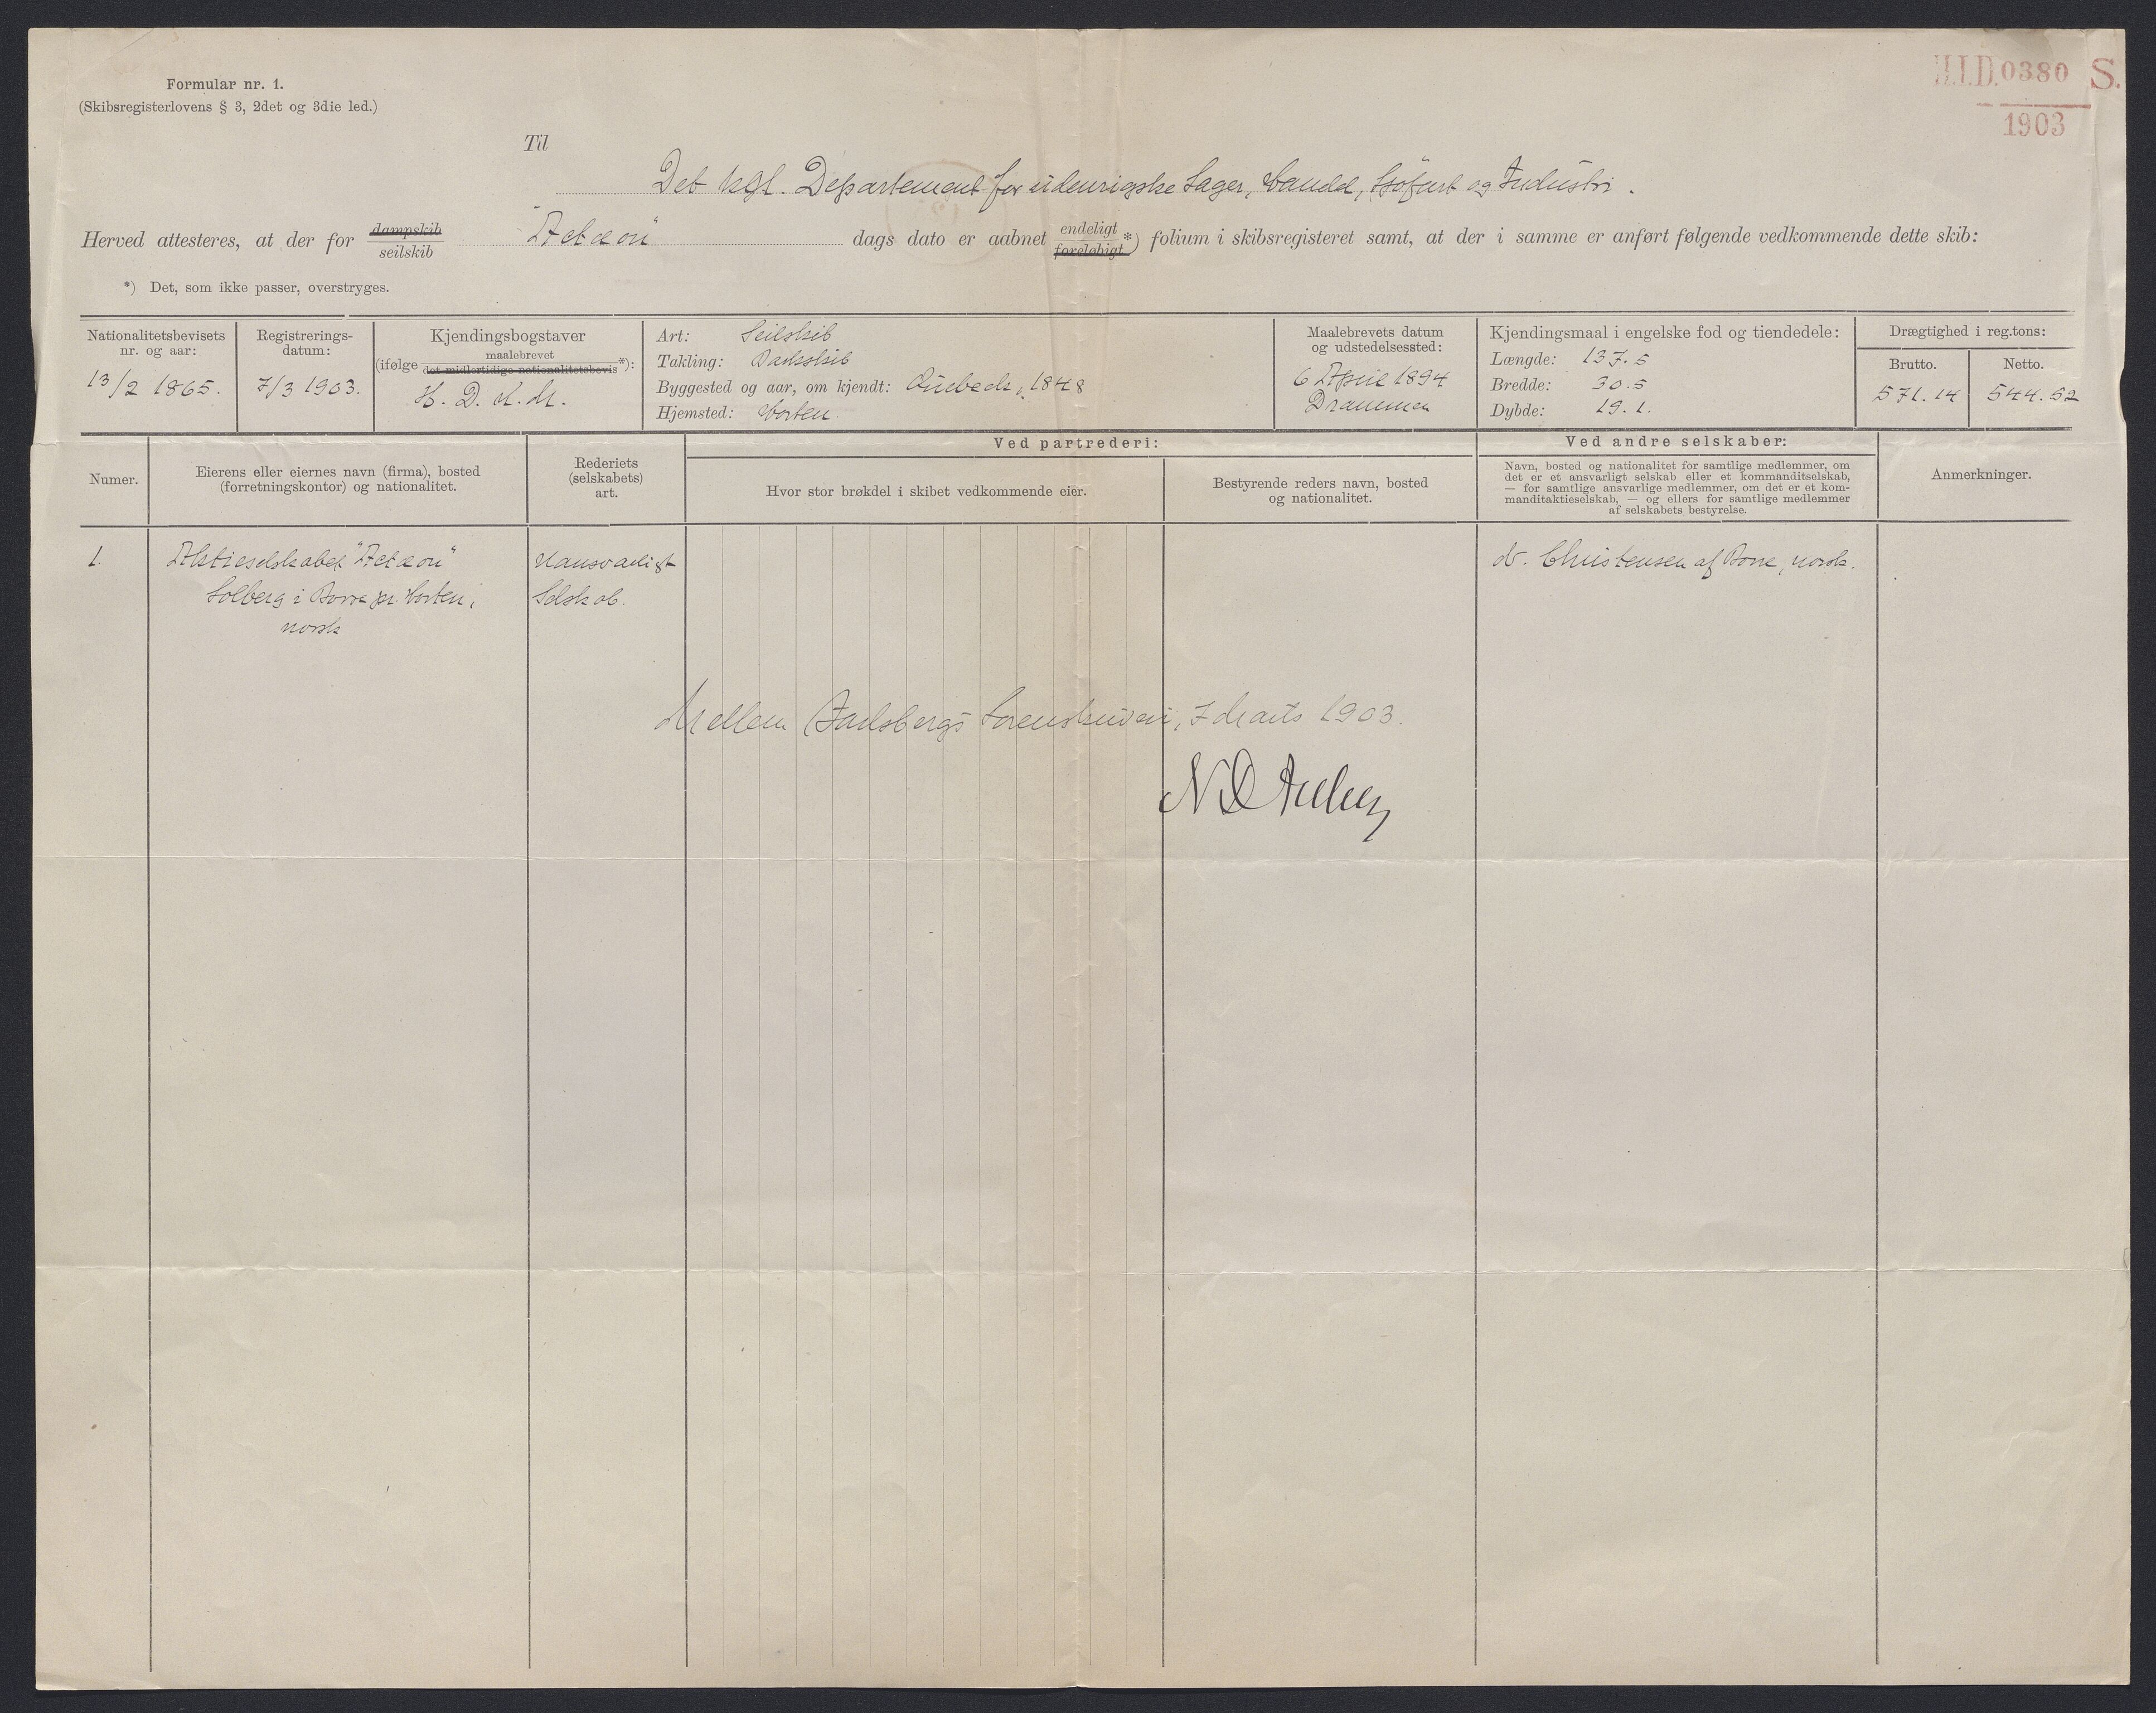 Formular nr. 1.
(Skibsregisterlovens § 3, 2det og 3die led.)
H.I.D. 0380 S.
1903
Til
Det kgl. Departement for udenrigske Sager, Handel, Söfart og Industri.
Herved attesteres, at der for dampskib seilskib "Actæon" dags dato er aabnet endeligt foreløbigt *) folium i skibsregisteret samt, at der i samme er anført følgende vedkommende dette skib:
*) Det, som ikke passer, overstryges.
Nationalitetsbevisets nr. og aar:
13/2 1865.
Registrerings-datum:
7/3 1903.
Kjendingsbogstaver
(ifølge maalebrevet det midlertidige nationalitetsbevis *):
H. D. M.
Art: Seilskib
Takling: Barkskib
Byggested og aar, om kjendt: Quebeck, 1848
Hjemsted: Horten
Maalebrevets datum
og udstedelsessted:
6 April 1894
Drammen
Kjendingsmaal i engelske fod og tiendedele:
Længde: 137.5
Bredde: 30.5
Dybde: 19.1.
Drægtighed i reg.tons:
Brutto. Netto.
571.14 544.52
Numer.
Eierens eller eiernes navn (firma), bosted
(forretningskontor) og nationalitet.
Rederiets
(selskabets)
art.
Ved partrederi:
Hvor stor brøkdel i skibet vedkommende eier.
Bestyrende reders navn, bosted
og nationalitet.
Ved andre selskaber:
Navn, bosted og nationalitet for samtlige medlemmer, om
det er et ansvarligt selskab eller et kommanditselskab,
— for samtlige ansvarlige medlemmer, om det er et kom-
manditaktieselskab, — og ellers for samtlige medlemmer
af selskabets bestyrelse.
Anmerkninger.
1.
Aktieselskabet "Actæon"
Solberg i Borre pr. Horten,
norsk
Uansvarligt
Selskab.
Christensen af Borre, norsk.
Mellem Jarlsbergs Sorenskriveri, 7 Marts 1903.